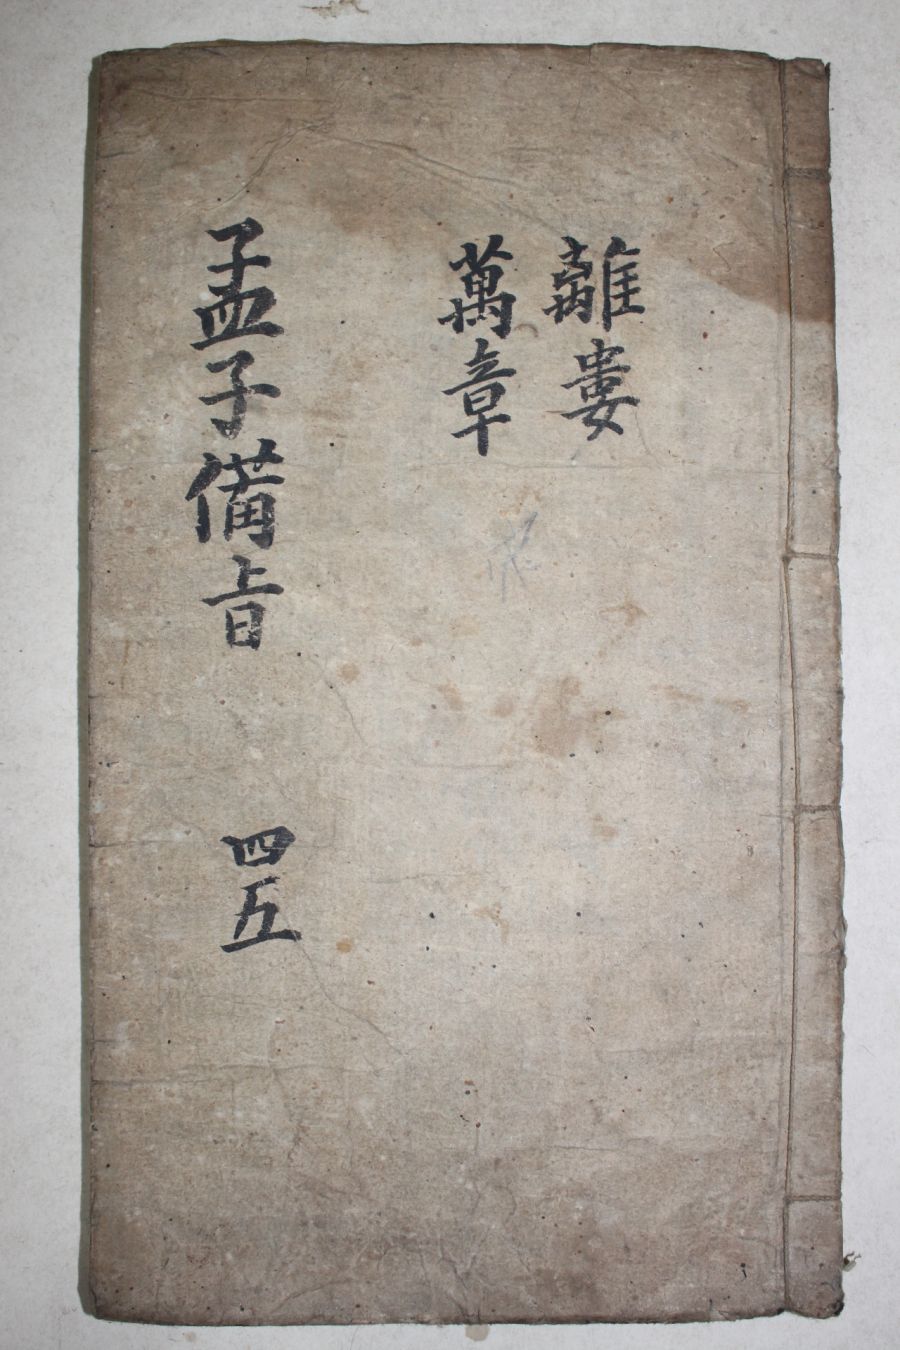 離婁
萬章
孟子備旨 四五